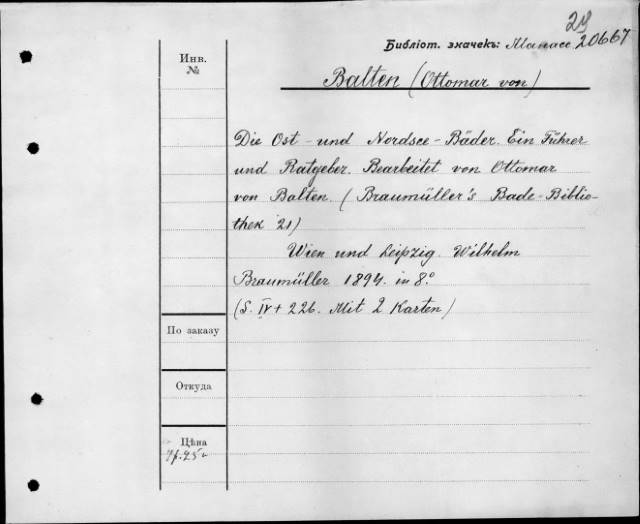 24
Библіот. значекъ: Manacc. 20667
Инв.
№
Balten (Ottomar von)
Die Ost- und Nordsee-Bäder. Ein Führer
und Ratgeber. Bearbeitet von Ottomar
von Balten. (Braumüller's Bade-Biblio-
thek 21)
Wien und Leipzig. Wilhelm
Braumüller 1894. in 8.°
(S. IV + 226. Mit 2 Karten)
По заказу
Откуда
Цѣна